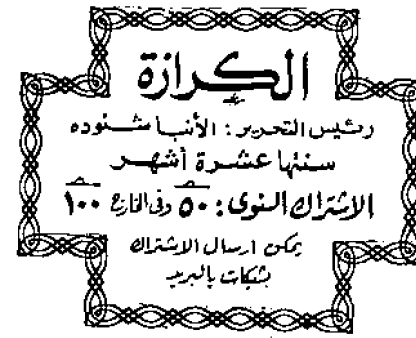 الكرازة
رئيس التحرير : الأنبا شنوده
سنتها عشرة أشهر
الاشتراك السنوى : ٥٠ وفى الخارج ١٠٠
يمكن ارسال الاشتراك
بشيكات بالبريد